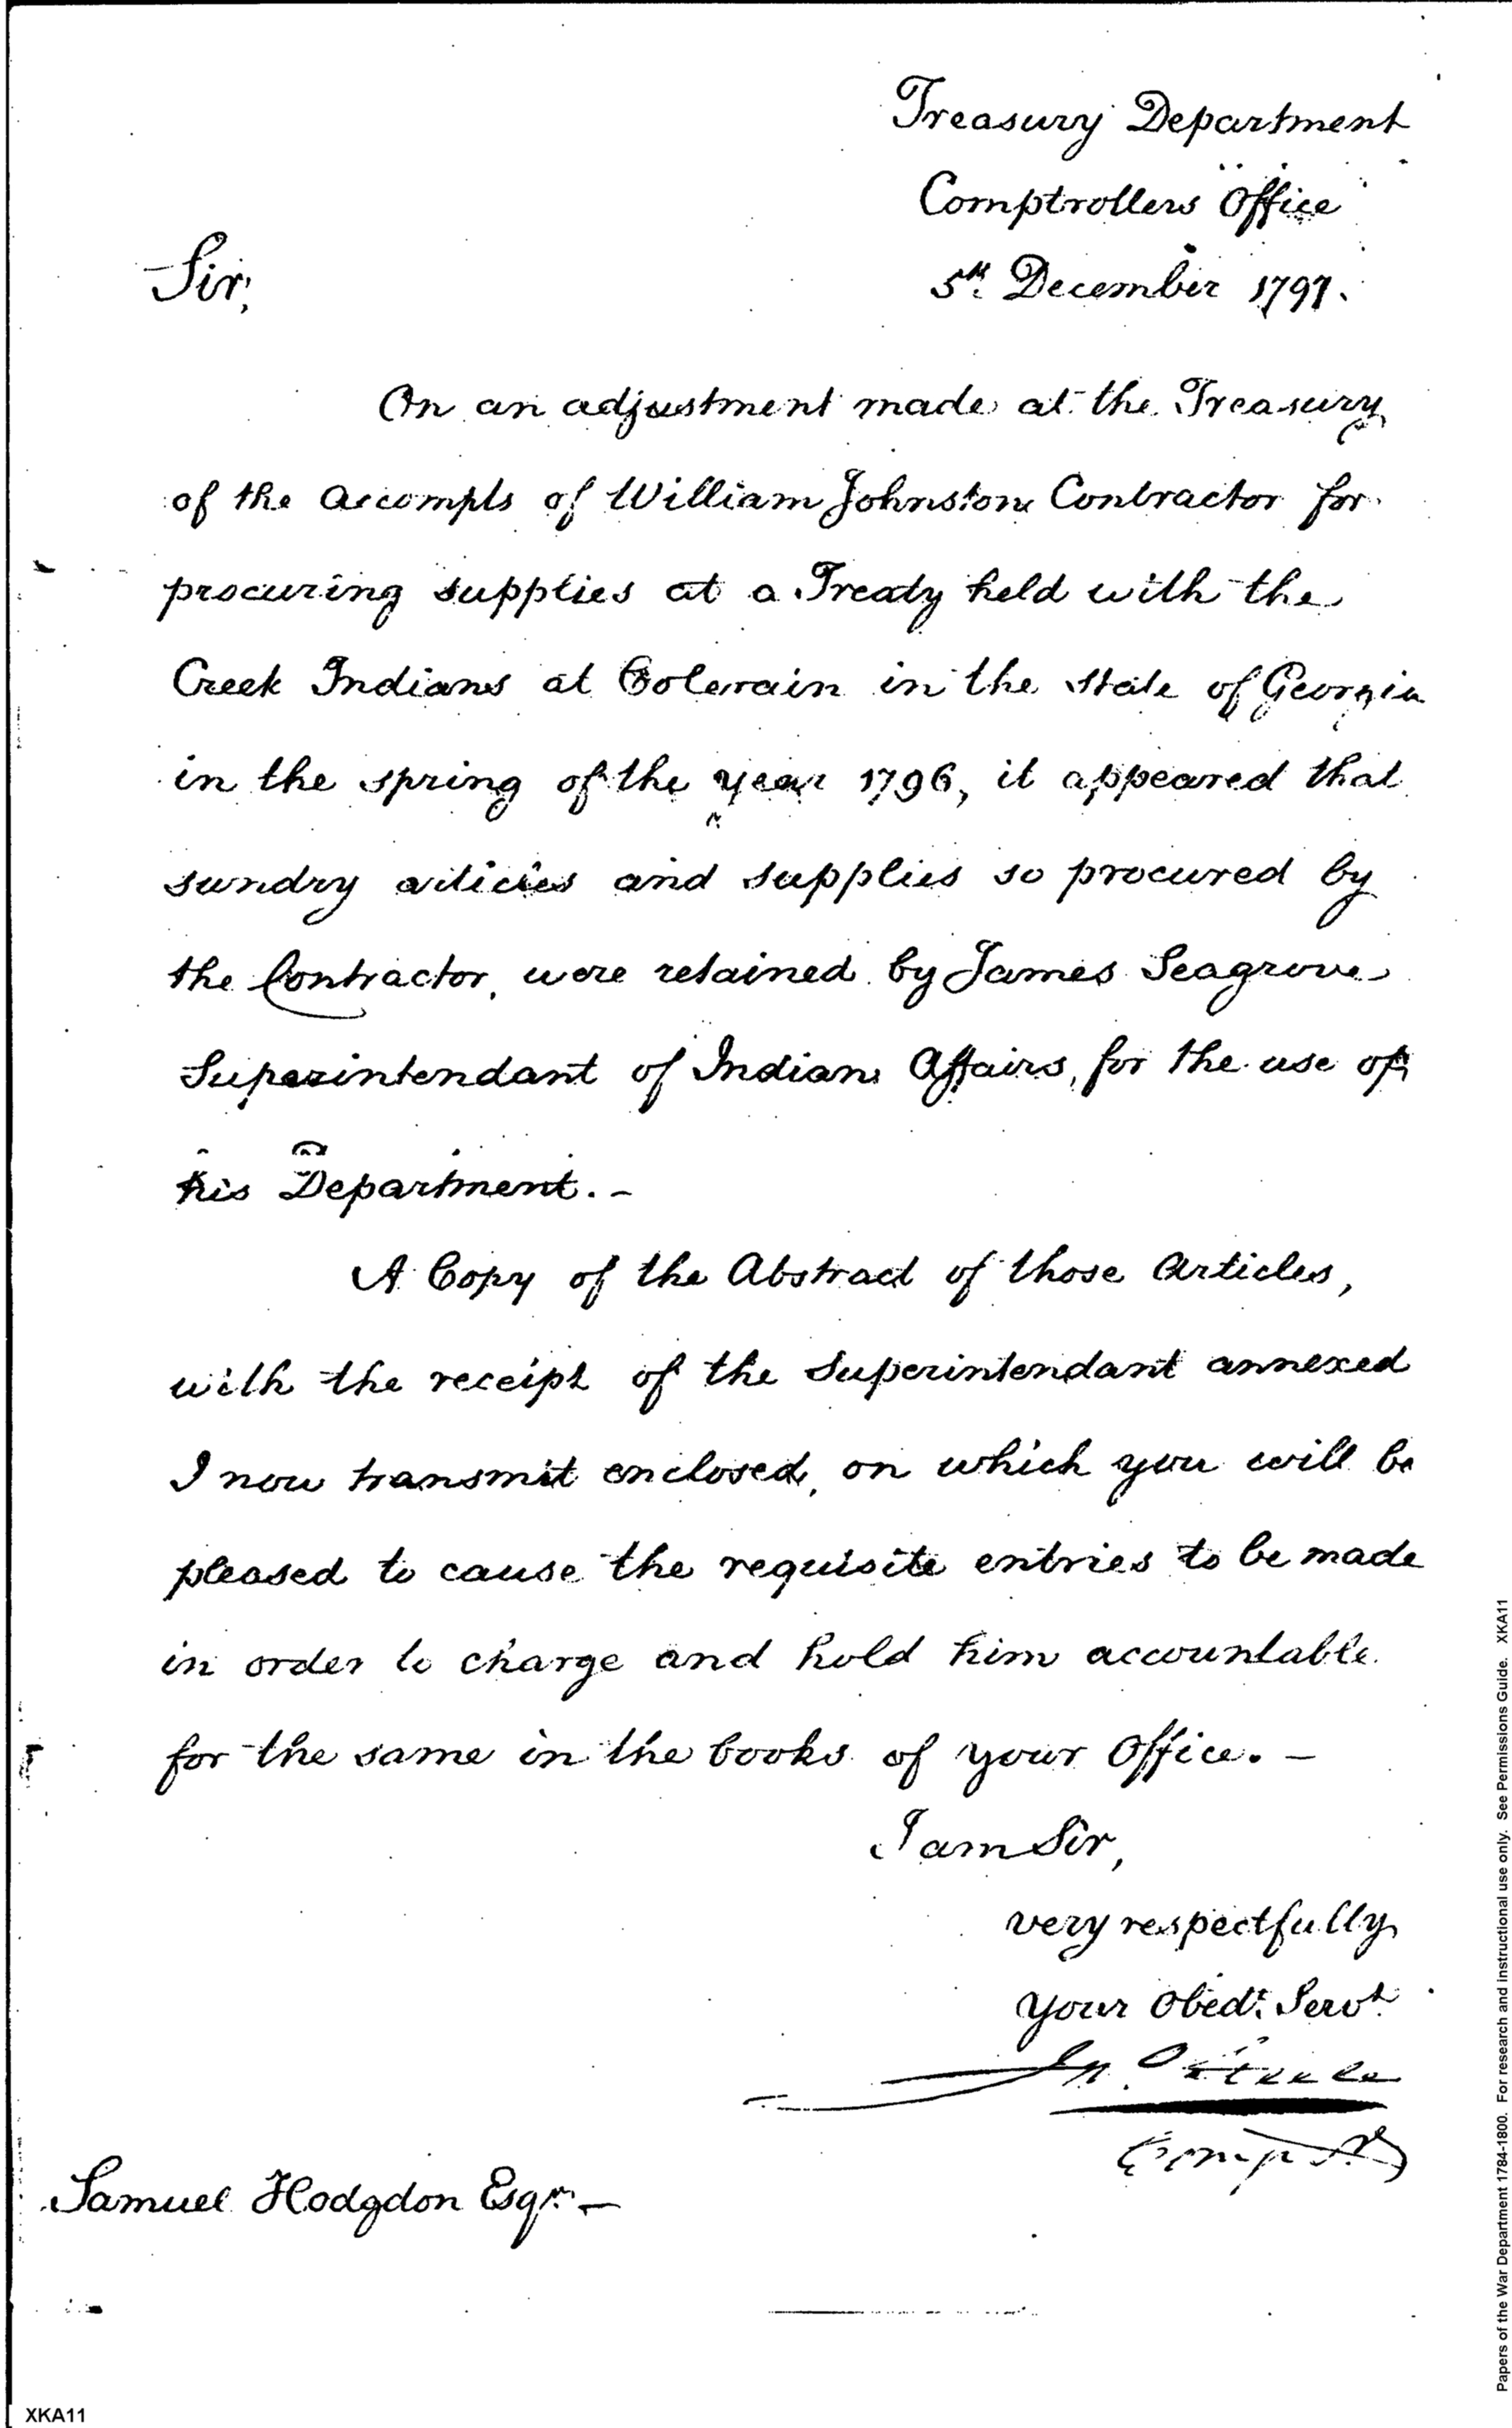 Treasury Department
Comptrollers Office
5th. December 1797.
Sir,
On an adjustment made at the Treasury
of the accompts of William Johnston Contractor for
procuring supplies at a Treaty held with the
Creek Indians at Colerain in the State of Georgia
in the spring of the year 1796, it appeared that
sundry articles and supplies so procured by
the Contractor, were retained by James Seagrove
Superintendant of Indian Affairs, for the use of
his Department. -
A Copy of the Abstract of those Articles,
with the receipt of the Superintendant annexed
I now transmit enclosed, on which you will be
pleased to cause the requisite entries to be made
in order to charge and hold him accountable
for the same in the books of your Office. -
I am Sir,
very respectfully
your Obedt. Servt.
Jn. Steele
Compr
Samuel Hodgdon Esqr. -
XKA11
Papers of the War Department 1784-1800. For research and instructional use only. See Permissions Guide. XKA11